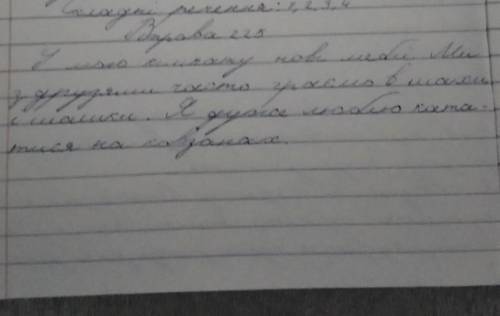 Складні речення: 1, 2, 3, 4
Вправа 225
У мою кімнату нові меблі. Ми
з друзями часто граємо в шахи
і шашки. Я дуже люблю ката-
тися на ковзанах.